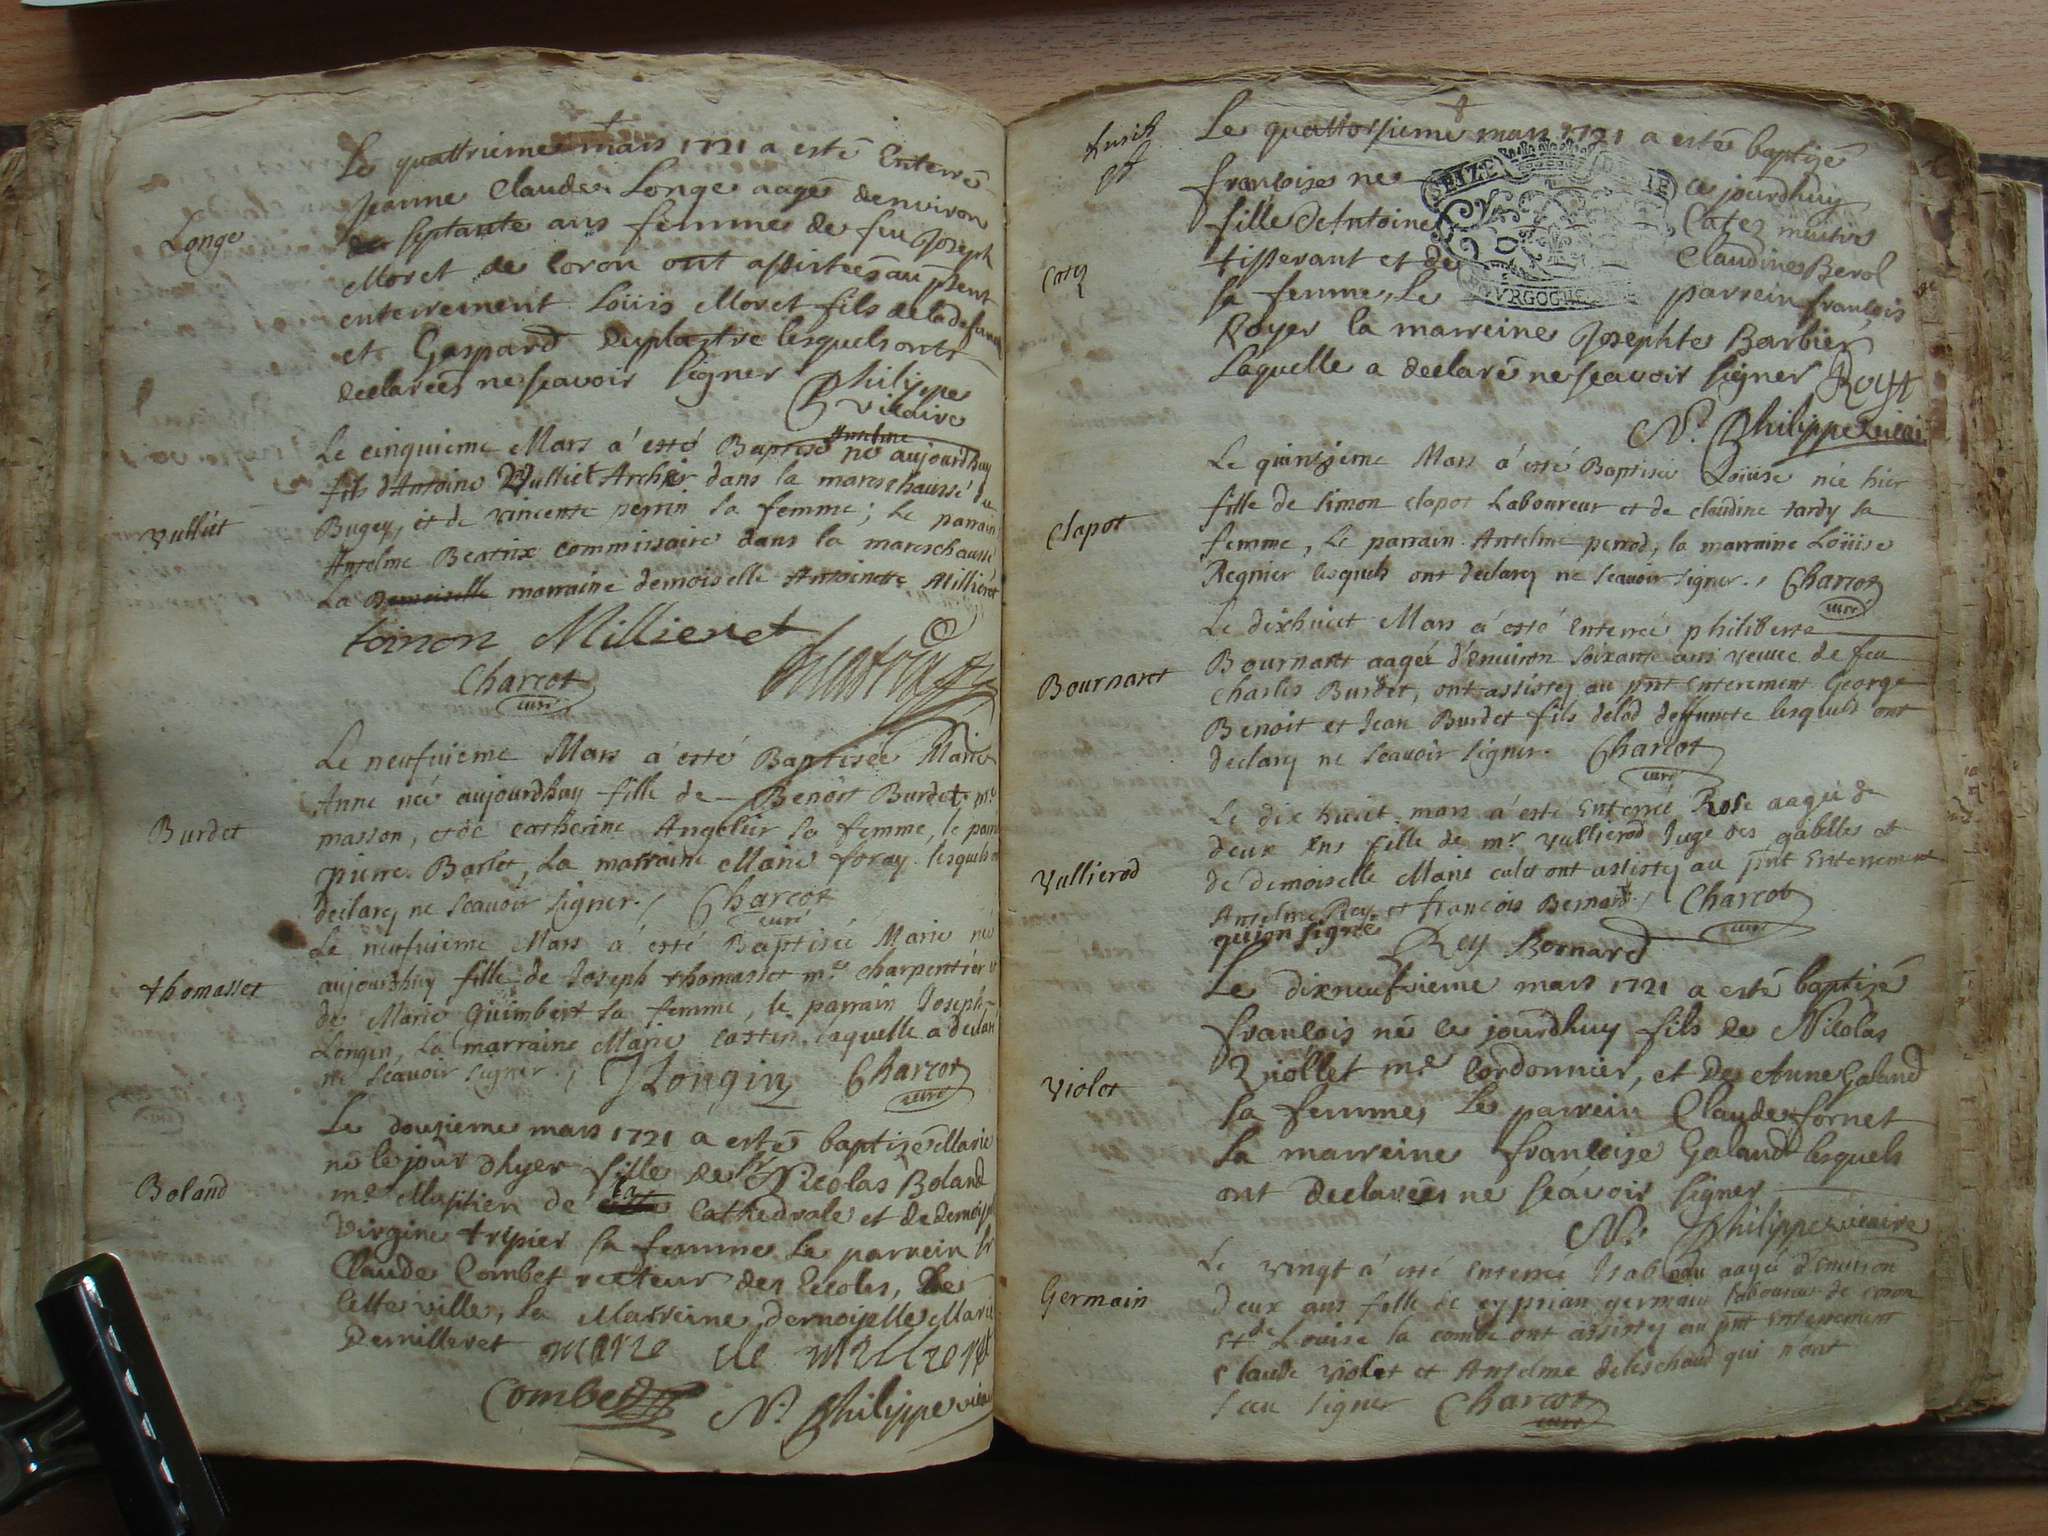 Longe
Le quattrieme mars 1721 a esté Enterré
Jeanne Claude Longe aagés denviron
de septante ans femme de feu Joseph
Moret de Coron ont assistées au psent
enterrement Loüis Moret fils de la defunct
et Gaspard Duplastre lesquels onts
declareés ne scavoir signer Philippe
vicaire
Vulliet
Anselme
Le cinquieme Mars a esté Baptisé né aujourdhuy
fils d'Antoine Vulliet Archer dans la mareschaussé du
Bugey, et de vincente perrin sa femme; Le parrain
Anselme Beatrix commissaire dans la mareschaussé
La Demoiselle marraine demoiselle Antoinette Millieret
toinon Millieret
Charcot
curé
Burdet
Le neufvieme Mars a esté Baptisée Marie
Anne née aujourdhuy fille de Benoit Burdet me
masson, et de catherine Angelier sa femme, le parrain
pierre Barlet, La marraine Marie foray lesquels
declarez ne scavoir signer. Charcot
curé
thomasset
Le neufvieme Mars a esté Baptisée Marie née
aujourdhuy fille de Joseph thomasset me charpentier et
de Marie Guimbert sa femme, le parrain Joseph
Longin, La marraine Marie Costin laquelle a declaré
ne scavoir signer. JLongin Charcot
curé
Boland
Le douzieme mars 1721 a esté baptizé Marie
né le jour dhyer fille de sr Nicolas Boland
me Musitien de la Cathedrale et de demoiselle
Virgine tripier sa femme Le parrein sr
Claude Combet recteur des Eccoles, De
cette ville, La Marreine demoiselle Marie
Demilleret marie de milleret
Combet N. Philippe vicaire
Le quattorsieme mars 1721 a esté baptizé
françoise né ce jourdhuy
fille d'Antoine Catez meitre
tisserant et de Claudine Berol
sa femme, Le parrein françois
Royer la marreine Josephte Barbier
Laquelle a declaré ne scavoir signer Royer
N. Philippe vicaire
Catez
SEIZE
BOVRGOGNE
Clapot
Le quinsieme Mars a esté Baptisée Loüise née hier
fille de simon clapot Laboureur et de claudine tardy sa
femme, Le parrain Anselme perrod, la marraine Loüise
Regnier lesquels ont declarez ne scavoir signer. Charcot
curé
Bournaret
Le dixhuict Mars a esté Enterrée philiberte
Bournaret aagée d'Environ soixante ans veuve de feu
charles Burdet, ont assistez au pnt Enterement George
Benoit et Jean Burdet fils delad deffuncte lesquels ont
declarez ne scavoir signer. Charcot
curé
Vullierod
Le dix huict mars a esté Enterré Rose aagée de
deux Ans fille de mr vullierod Juge des gabelles et
de demoiselle Marie culet ont assistez au pnt Enterrement
Anselme Rey et françois Bernard. Charcot
qui on signé Rey Bernard curé
Violet
Le dixneufvieme mars 1721 a esté baptizé
françois né ce jourdhuy fils de Nicolas
Viollet me Cordonnier, et de Anne Galand
sa femme, Le parrein Claude fornet
La marreine françoise Galand lesquels
ont declareés ne scavoir signer
N. Philippe vicaire
Germain
Le vingt a esté Enterré Isabeau aagée d'Environ
deux ans fille de cyprian germain laboureur de coron
et de Louise la combe ont assistez au pnt Enterrement
claude violet et Anselme deleschaud qui n'ont
sceu signer Charcot
curé